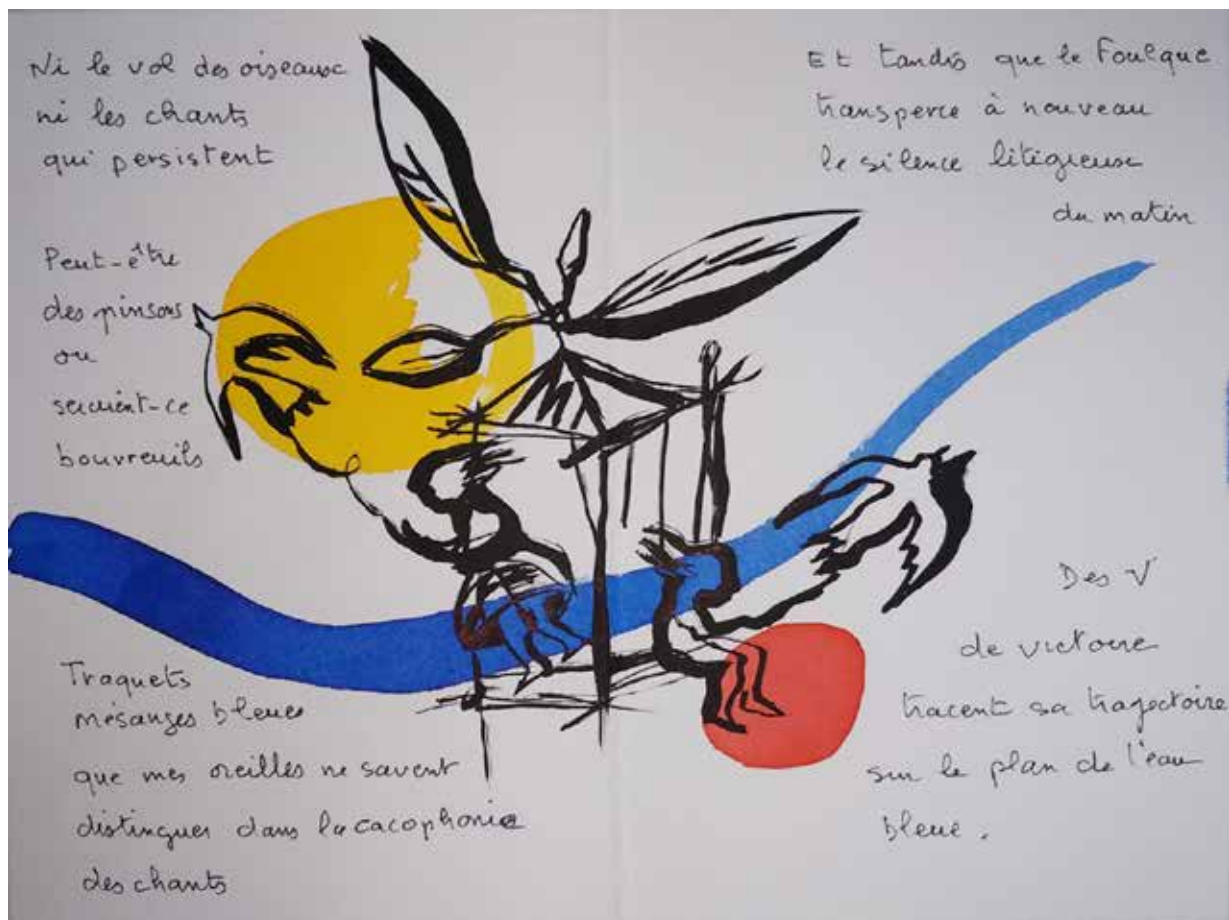 Ni le vol des oiseaux
ni les chants
qui persistent
Peut-être
des pinsons
ou
seraient-ce
bouvreuils
Traquets
mésanges bleues
que mes oreilles ne savent
distinguer dans la cacophonie
des chants
Et tandis que le Foulque
transperce à nouveau
le silence litigieux
du matin
Des V
de victoire
tracent sa trajectoire
sur le plan de l'eau
bleue.